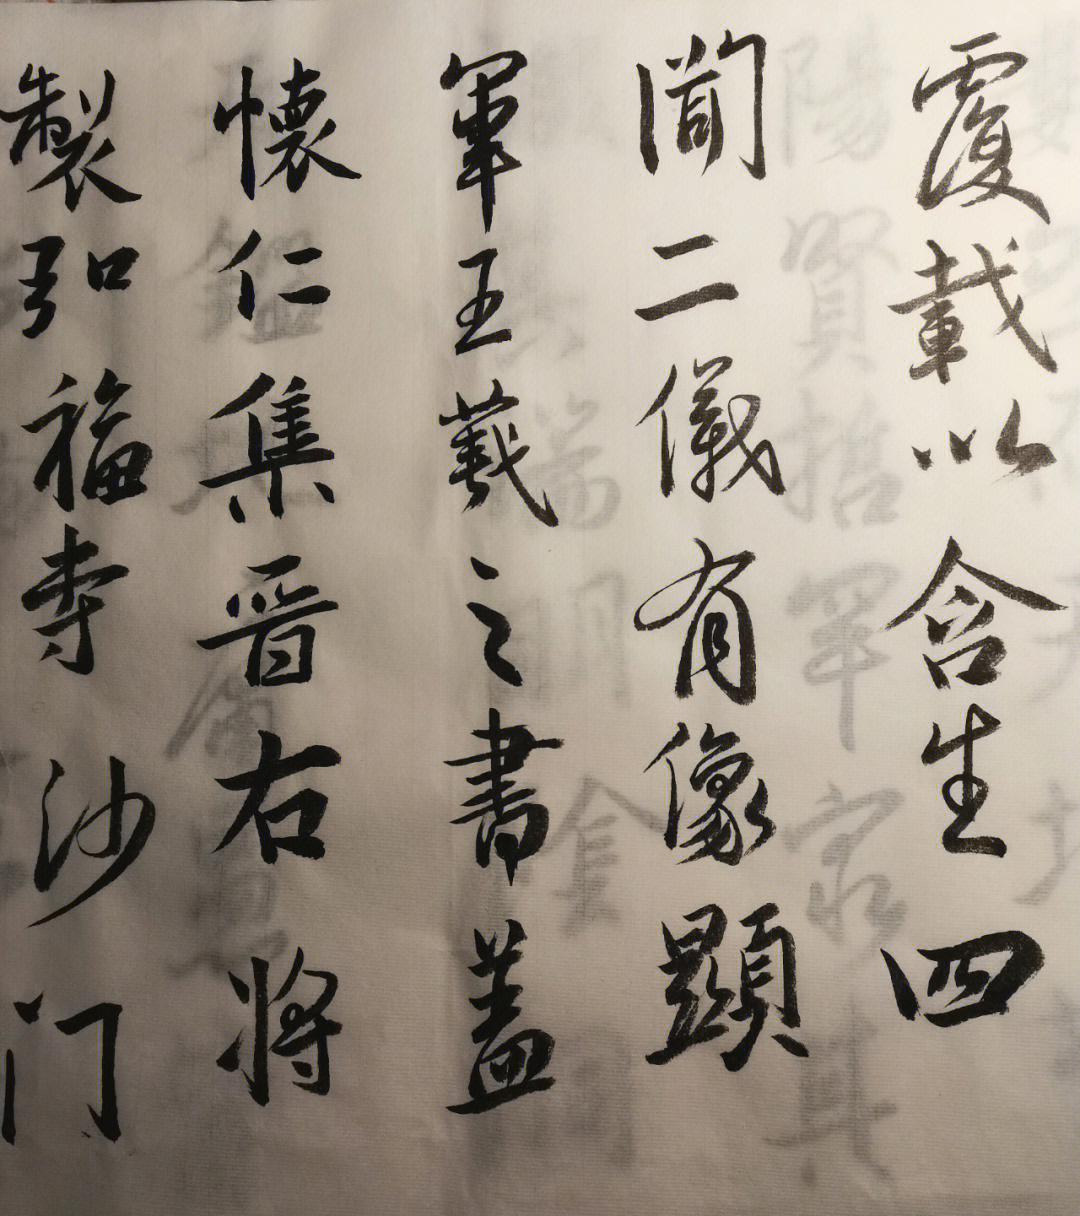 製弘福寺沙门
懷仁集晉右将
軍王羲之書盖
聞二儀有像顯
覆載以含生四